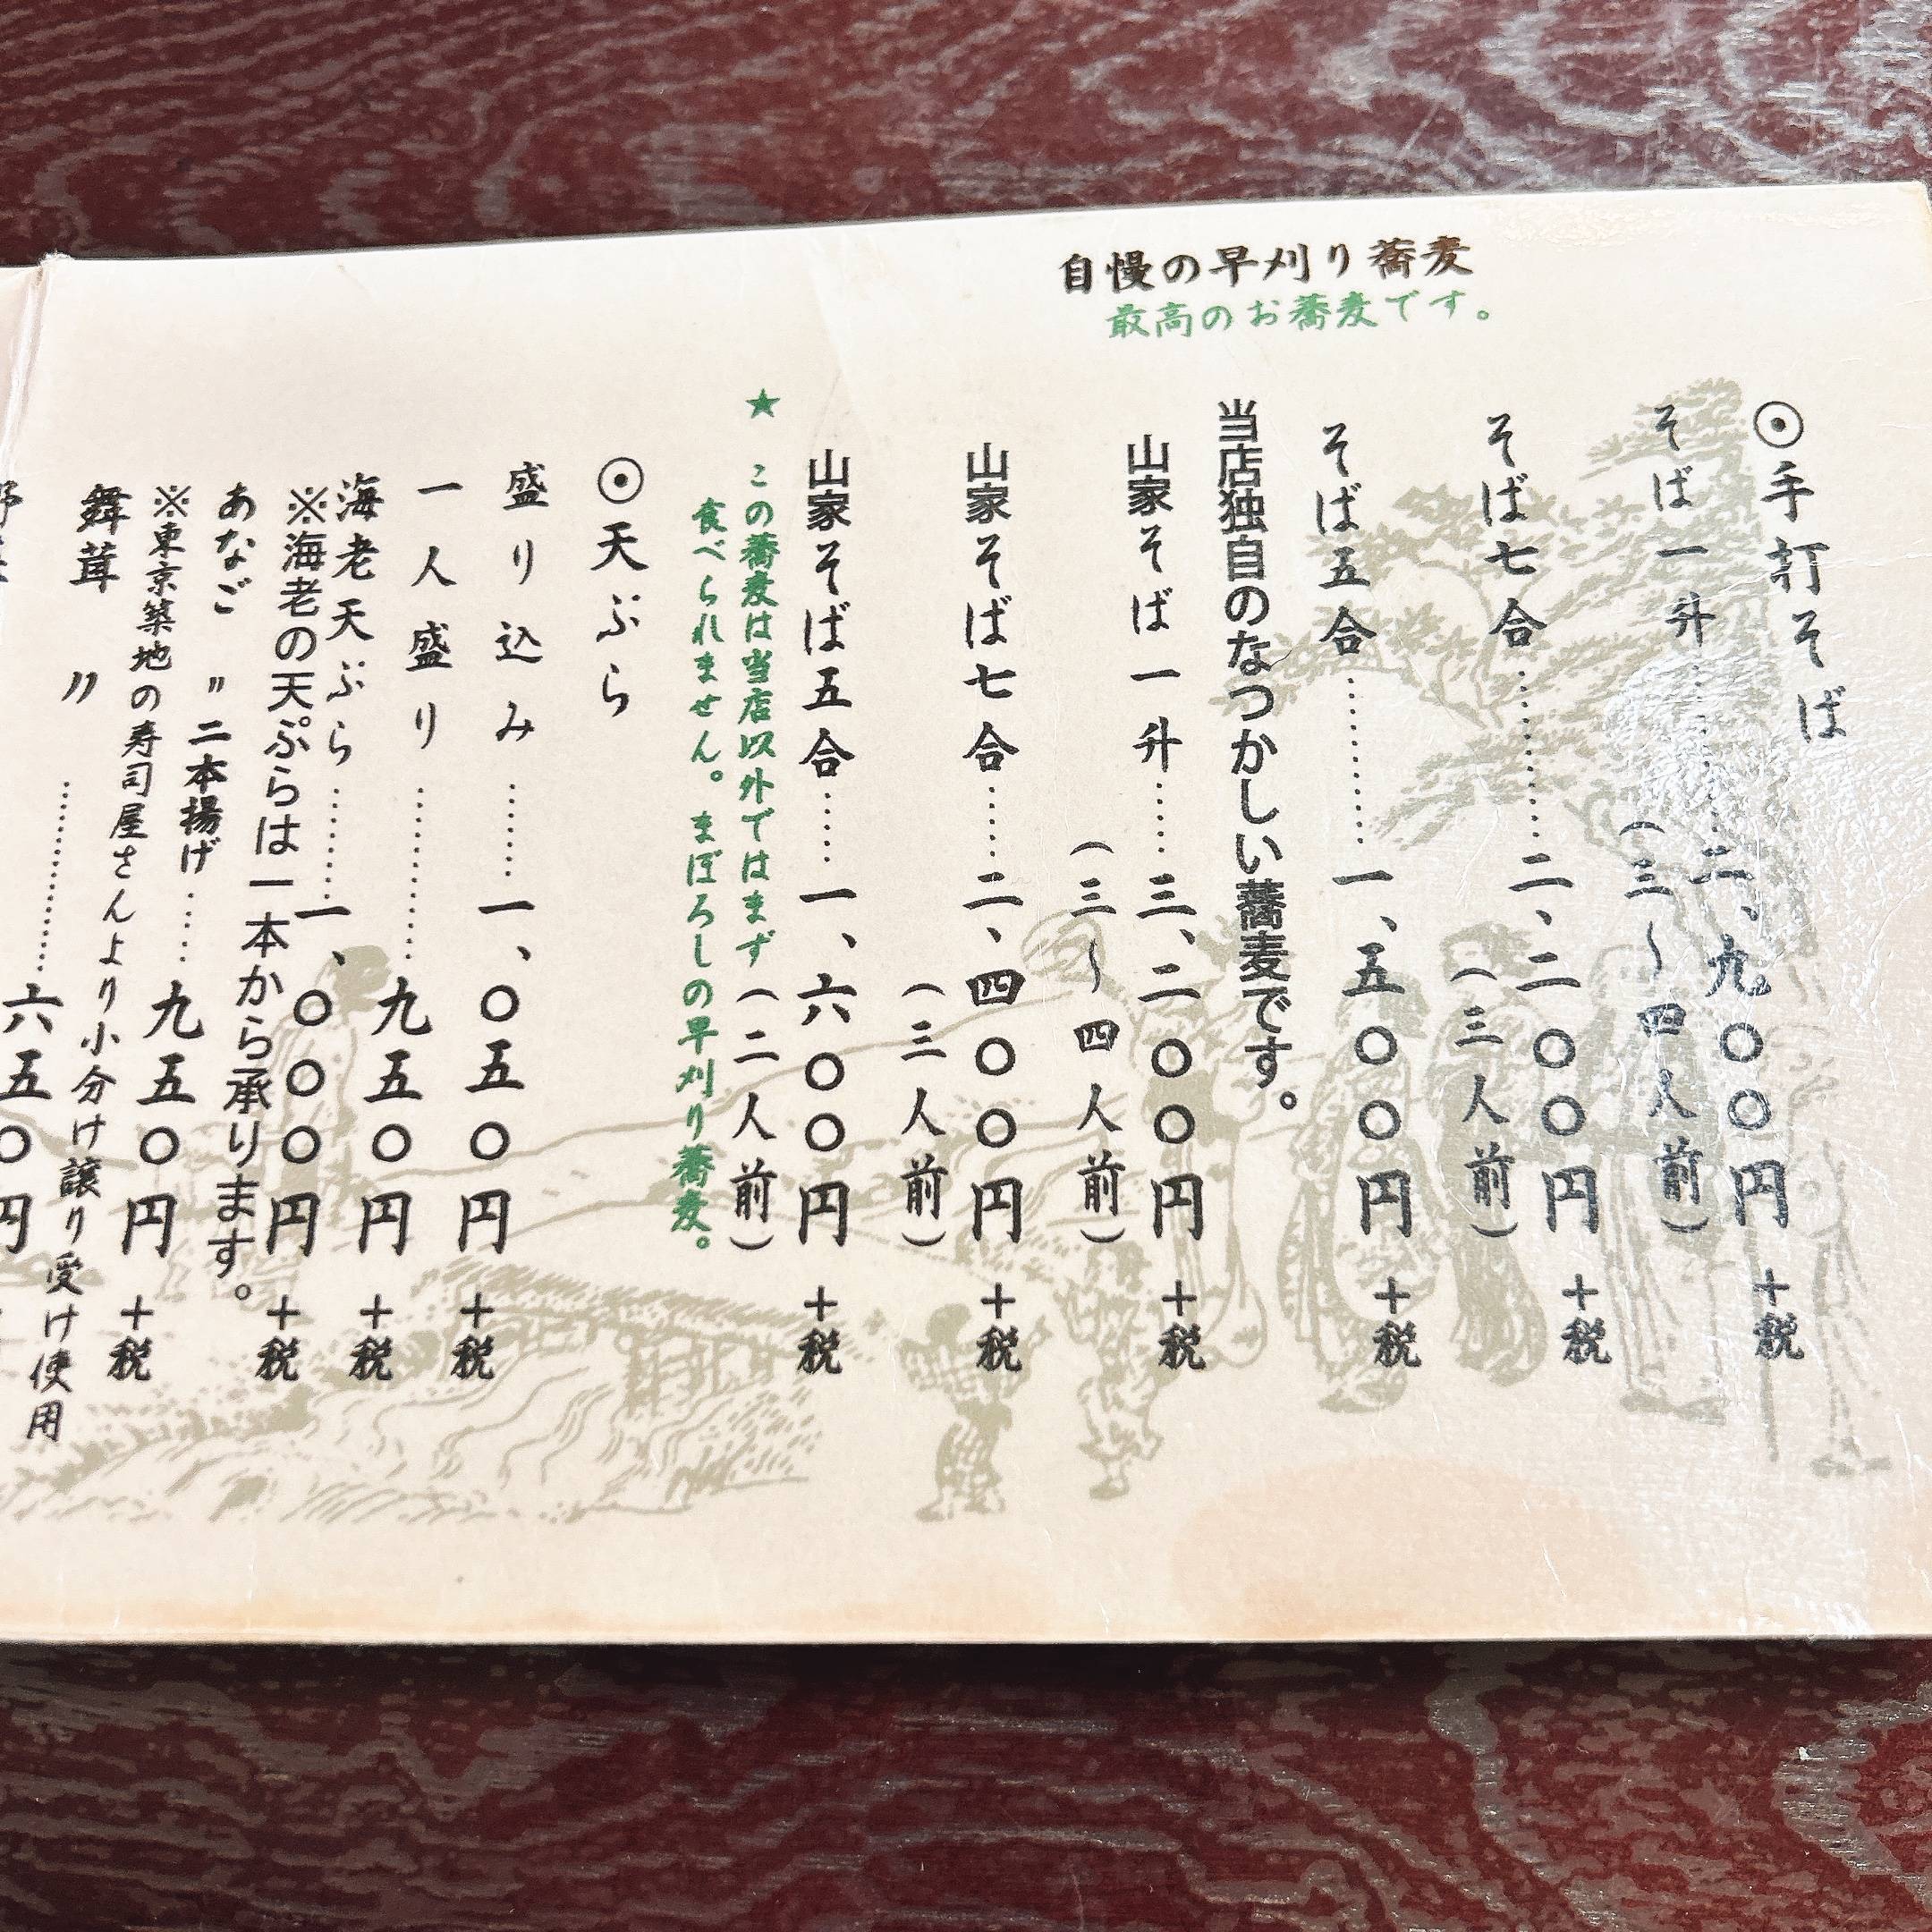 自慢の早刈り蕎麦
最高のお蕎麦です。
◉手打そば
そば一升……二、九〇〇円+税
(三~四人前)
そば七合……二、二〇〇円+税
(三人前)
そば五合……一、五〇〇円+税
当店独自のなつかしい蕎麦です。
山家そば一升……三、二〇〇円+税
(三~四人前)
山家そば七合……二、四〇〇円+税
(三人前)
山家そば五合……一、六〇〇円+税
(二人前)
★この蕎麦は当店以外ではまず
食べられません。まぼろしの早刈り蕎麦。
◉天ぷら
盛り込み……一、〇五〇円+税
一人盛り……九五〇円+税
海老天ぷら……一、〇〇〇円+税
※海老の天ぷらは一本から承ります。
あなご〃二本揚げ……九五〇円+税
※東京築地の寿司屋さんより小分け譲り受け使用
舞茸〃……六五〇円